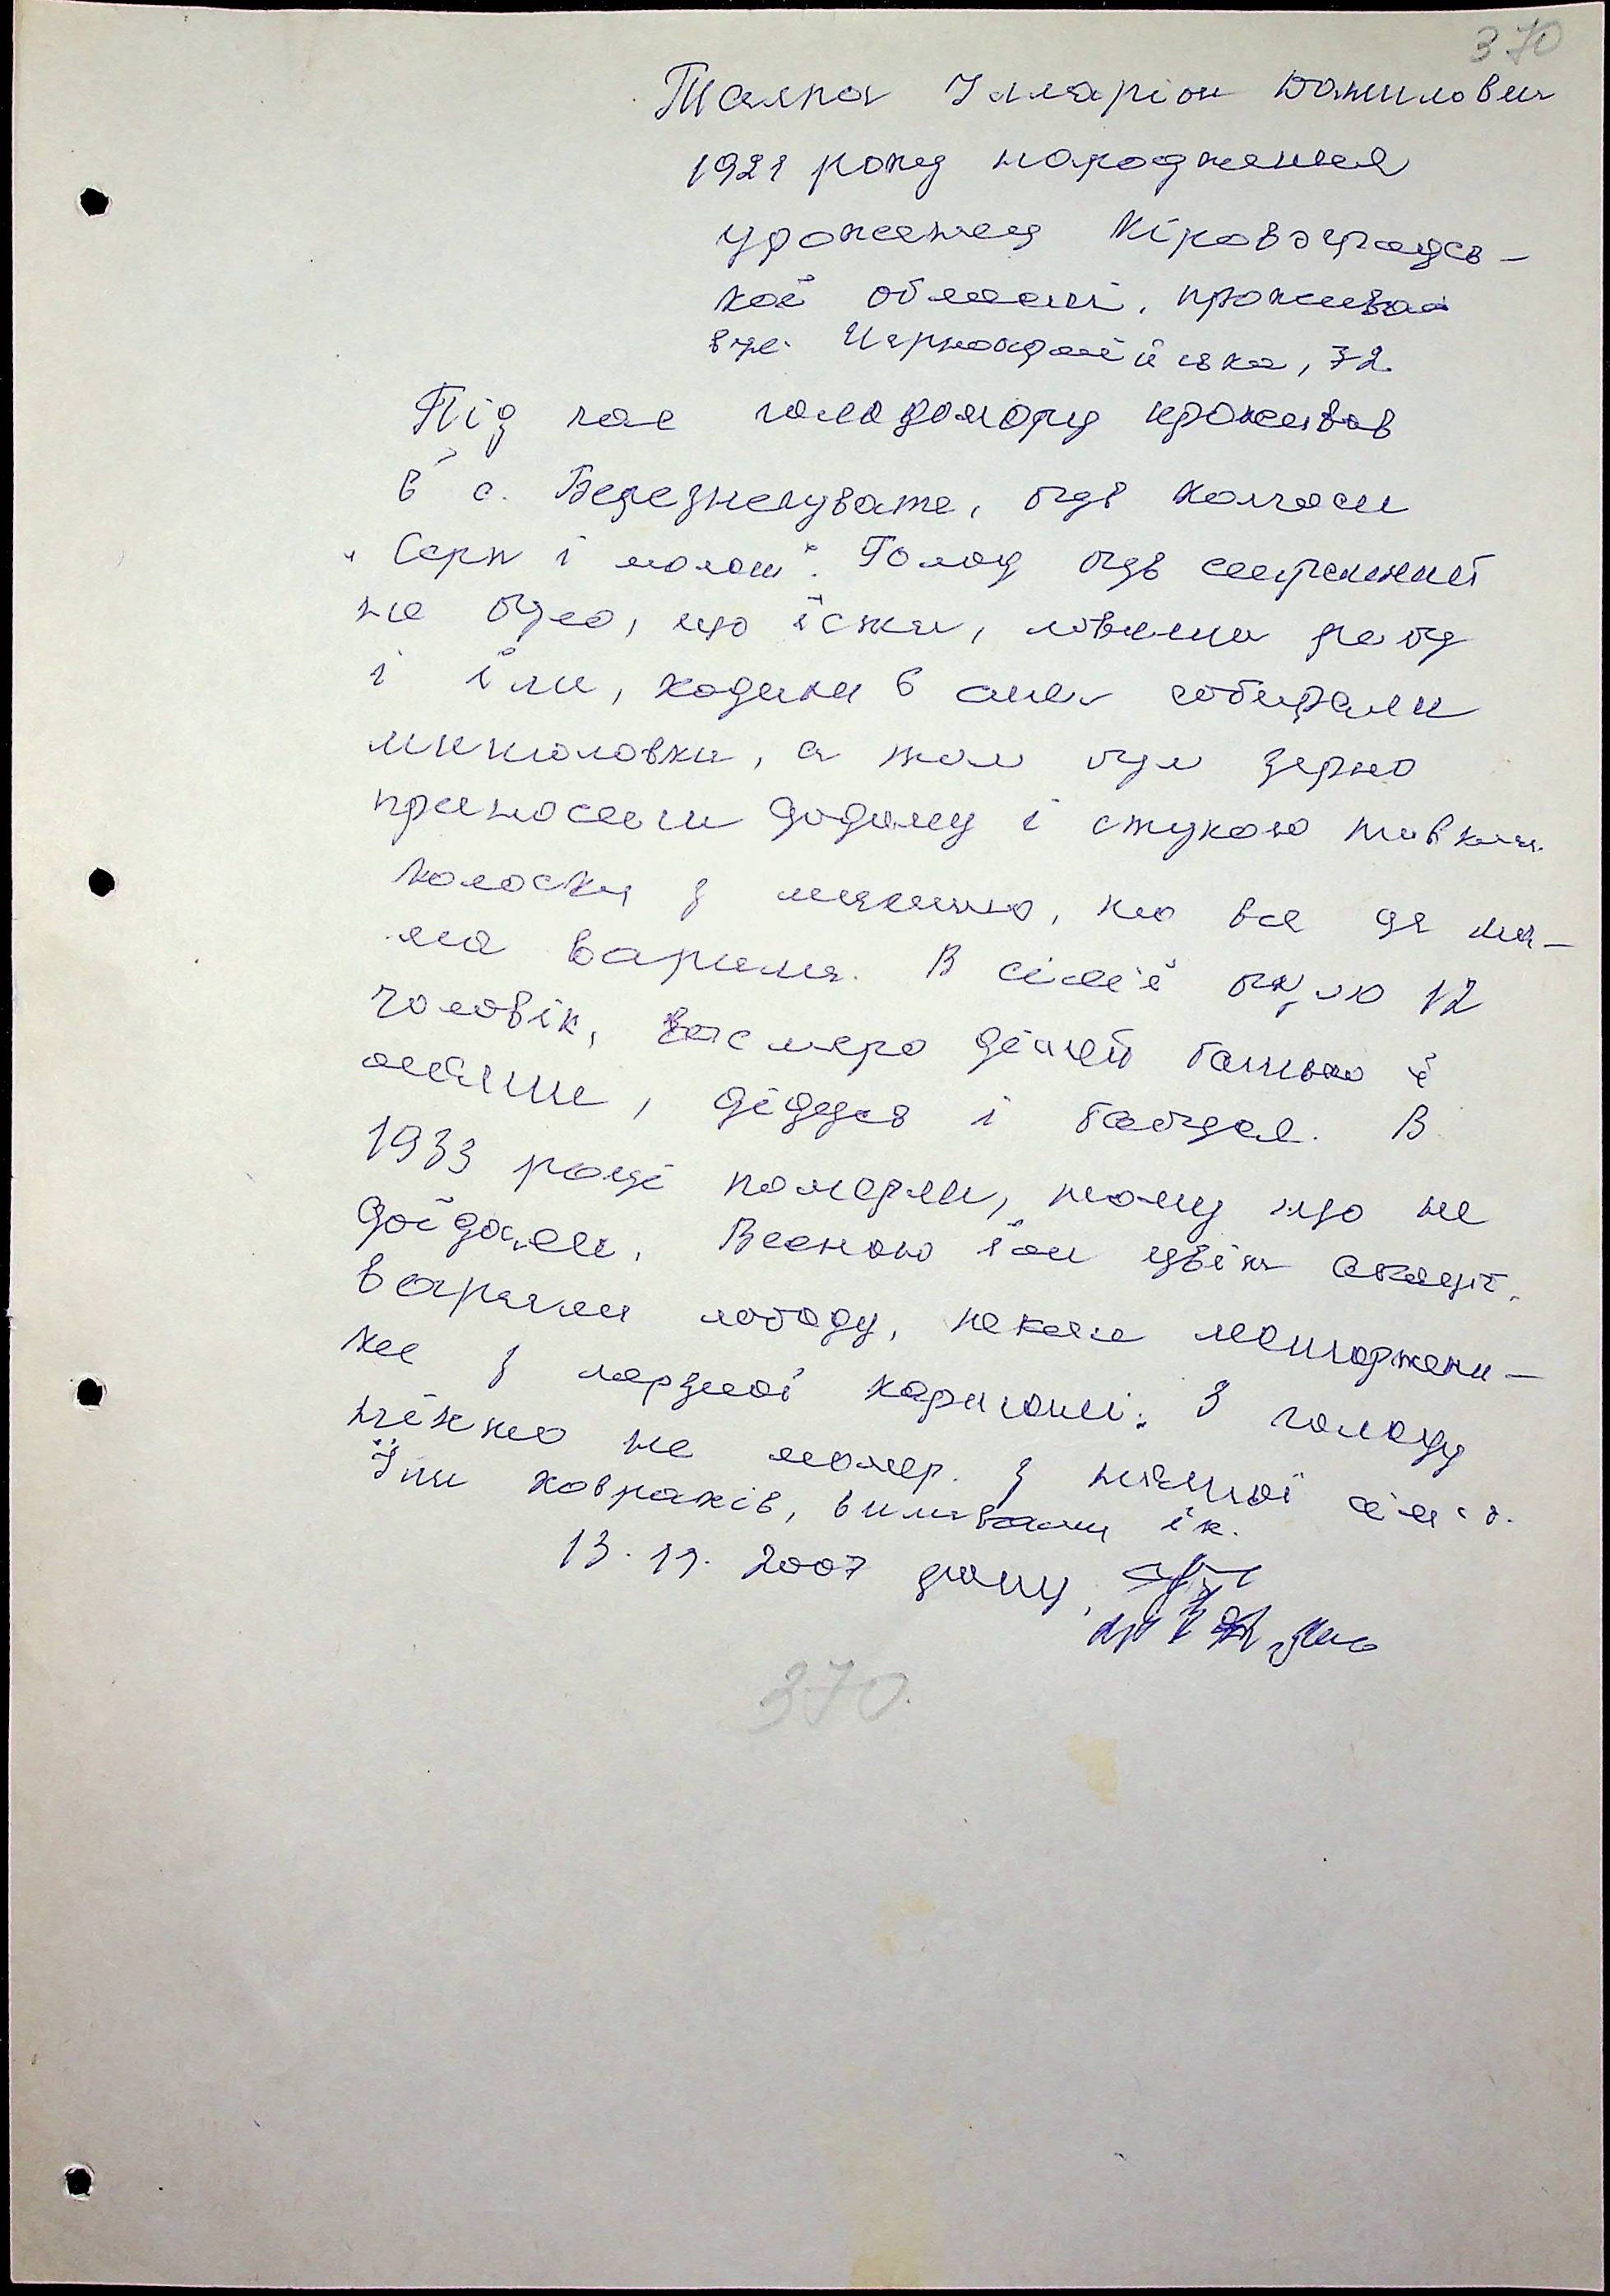 370
Талпа Ілларіон Данилович
1921 року народження
уроженец Кіровоградсь-
кої області, проживаю
вул. Червоноармійська, 72.
Під час голодомору проживав
в с. Березнегувате, був колгосп
"Серп і молот". Голод був страшний
не було, що їсти, ловили рибу
і їли, ходили в степ собирали
колоски, а там був зерно
приносили додому і ступкою товкли
колоски з мишию, по все це ма-
ма варила. В сім'ї було 12
чоловік, восьмеро дітей батько і
мати, дідусь і бабуся. В
1933 році померли, тому що не
доїдали. Весною їли цвіт акації,
варили лободу, пекли маторжени-
ки з мерзлої картошки. З голоду
ніхто не помер з нашої сім'ї.
Їли ховрахів, виливали їх.
13. 11. 2007 року,
370